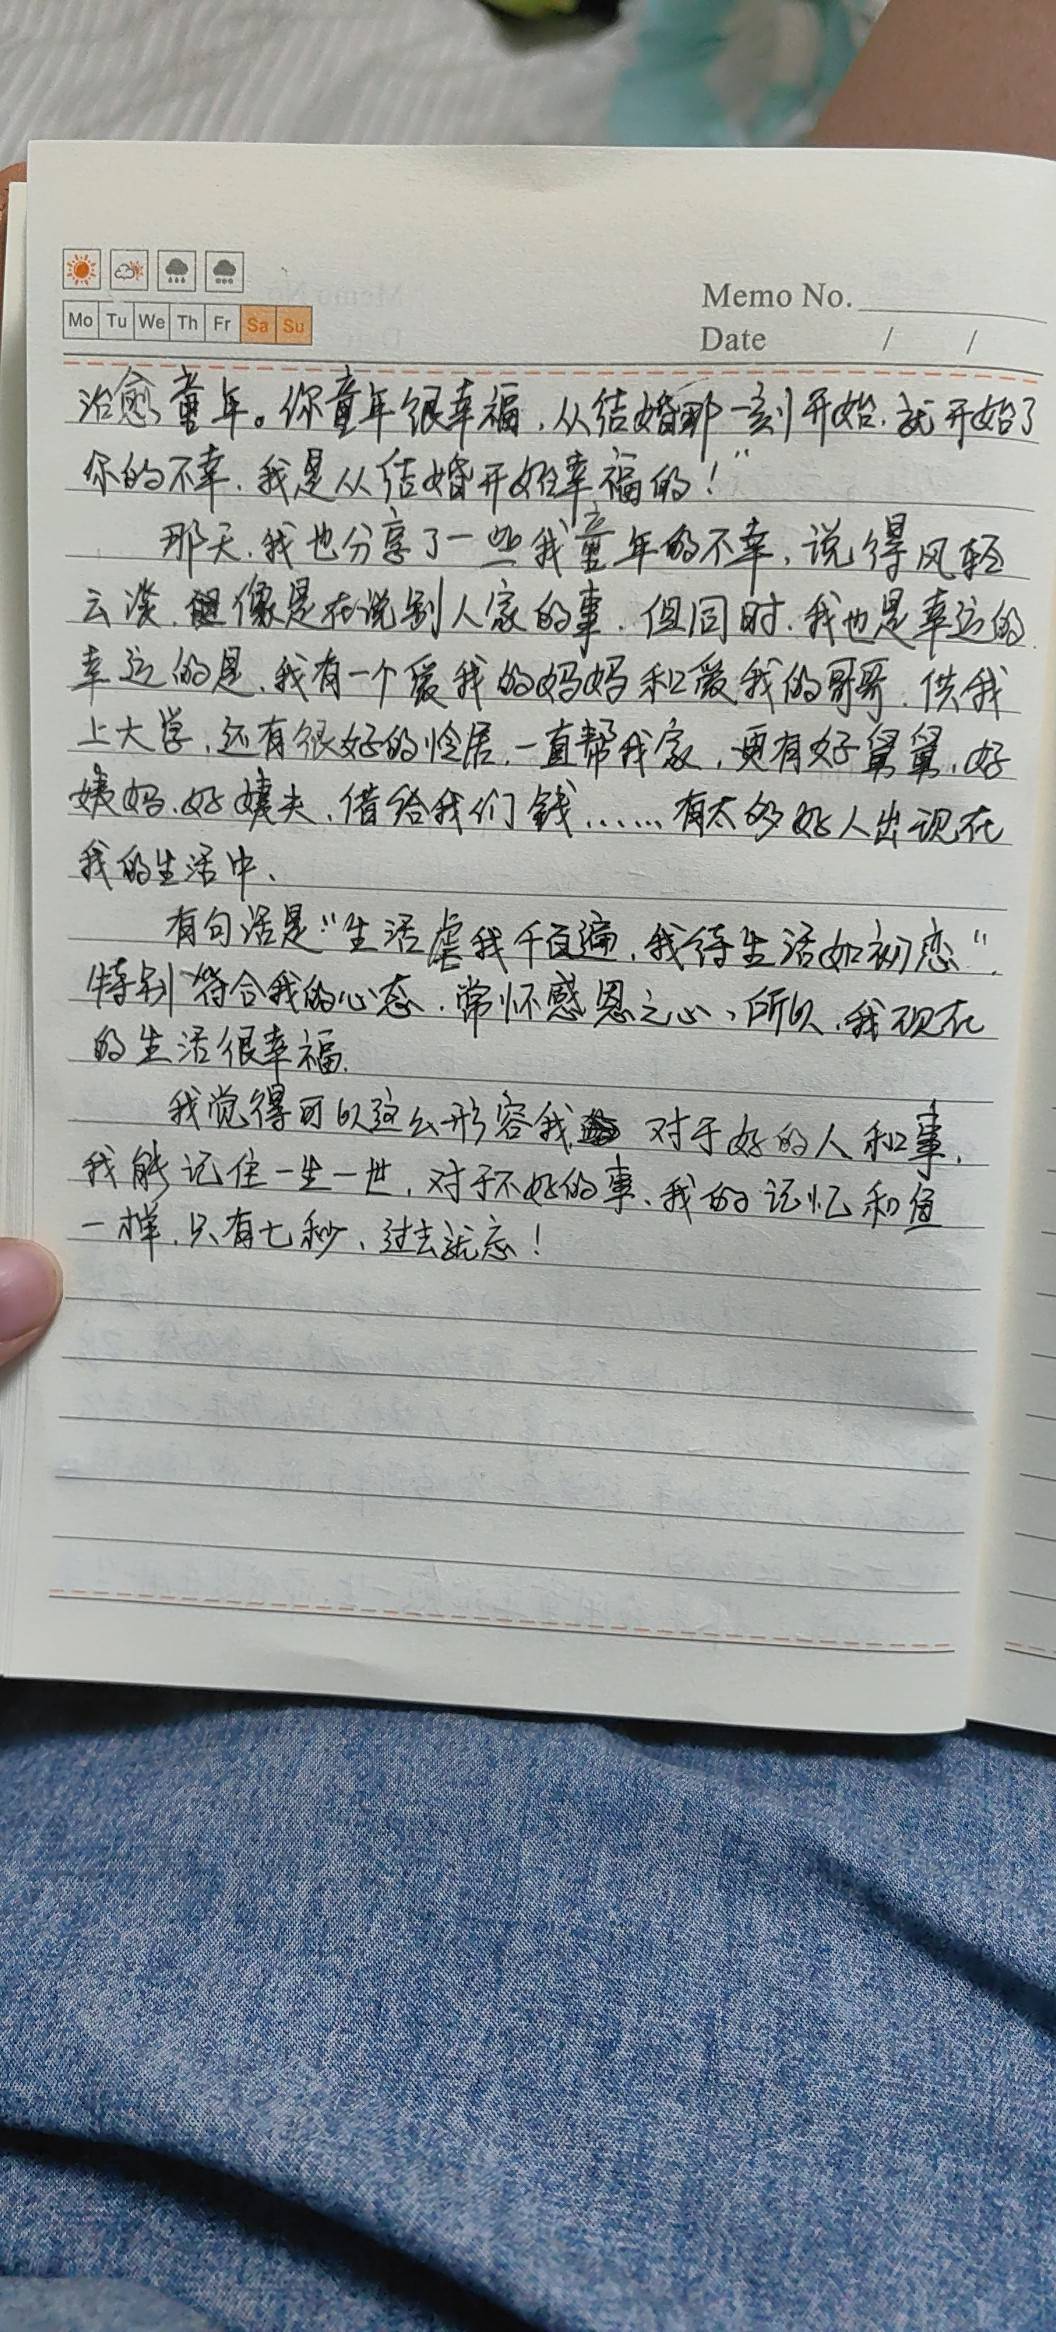 Memo No.
Mo Tu We Th Fr Sa Su
Date / /
治愈童年。你童年很幸福，从结婚那一刻开始，就开始了
你的不幸，我是从结婚开始幸福的！”
那天，我也分享了一些我童年的不幸，说得风轻
云淡，像是在说别人家的事，但同时，我也是幸运的，
幸运的是，我有一个爱我的妈妈和爱我的哥哥，供我
上大学，还有很好的邻居，一直帮我家，更有好舅舅，好
姨妈，好姨夫，借给我们钱……有太多好人出现在
我的生活中、
有句话是“生活虐我千百遍，我待生活如初恋”，
特别符合我的心态，常怀感恩之心，所以，我现在
的生活很幸福．
我觉得可以这么形容我 对于好的人和事，
我能记住一生一世，对于不好的事、我的记忆和鱼
一样，只有七秒，过去就忘！